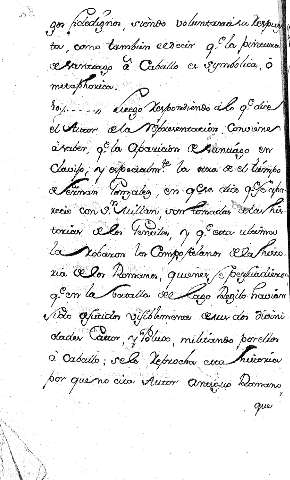 gos fidedignos, siendo voluntaria su respues
ta, como tambien el decir q.e la pintura
de Santiago a Caballo es symbolica, ó
metaphorica.
Luego respondiendo à lo q.e dice
el Autor de la Representacion, conviene
à saber, q.e la Aparicion de Santiago en
Clavijo, y especialm.te la otra de el tiempo
de Fernan Gonzalez, en que dice q.e apa
recio con S.n Millan, son tomadas de las his
torias de los Gentiles, y q.e esta ultima
la robaron los Compostelanos de la histo
ria de los Romanos, quienes
q.e en la batalla de Lago Regilo havian
sido asistidos visiblemente de sus dos Divini
dades Castor, y Polux, militando por ellos
à caballo; se le reprocha esta historia
por que no cita Autor Antiguo Romano,
que